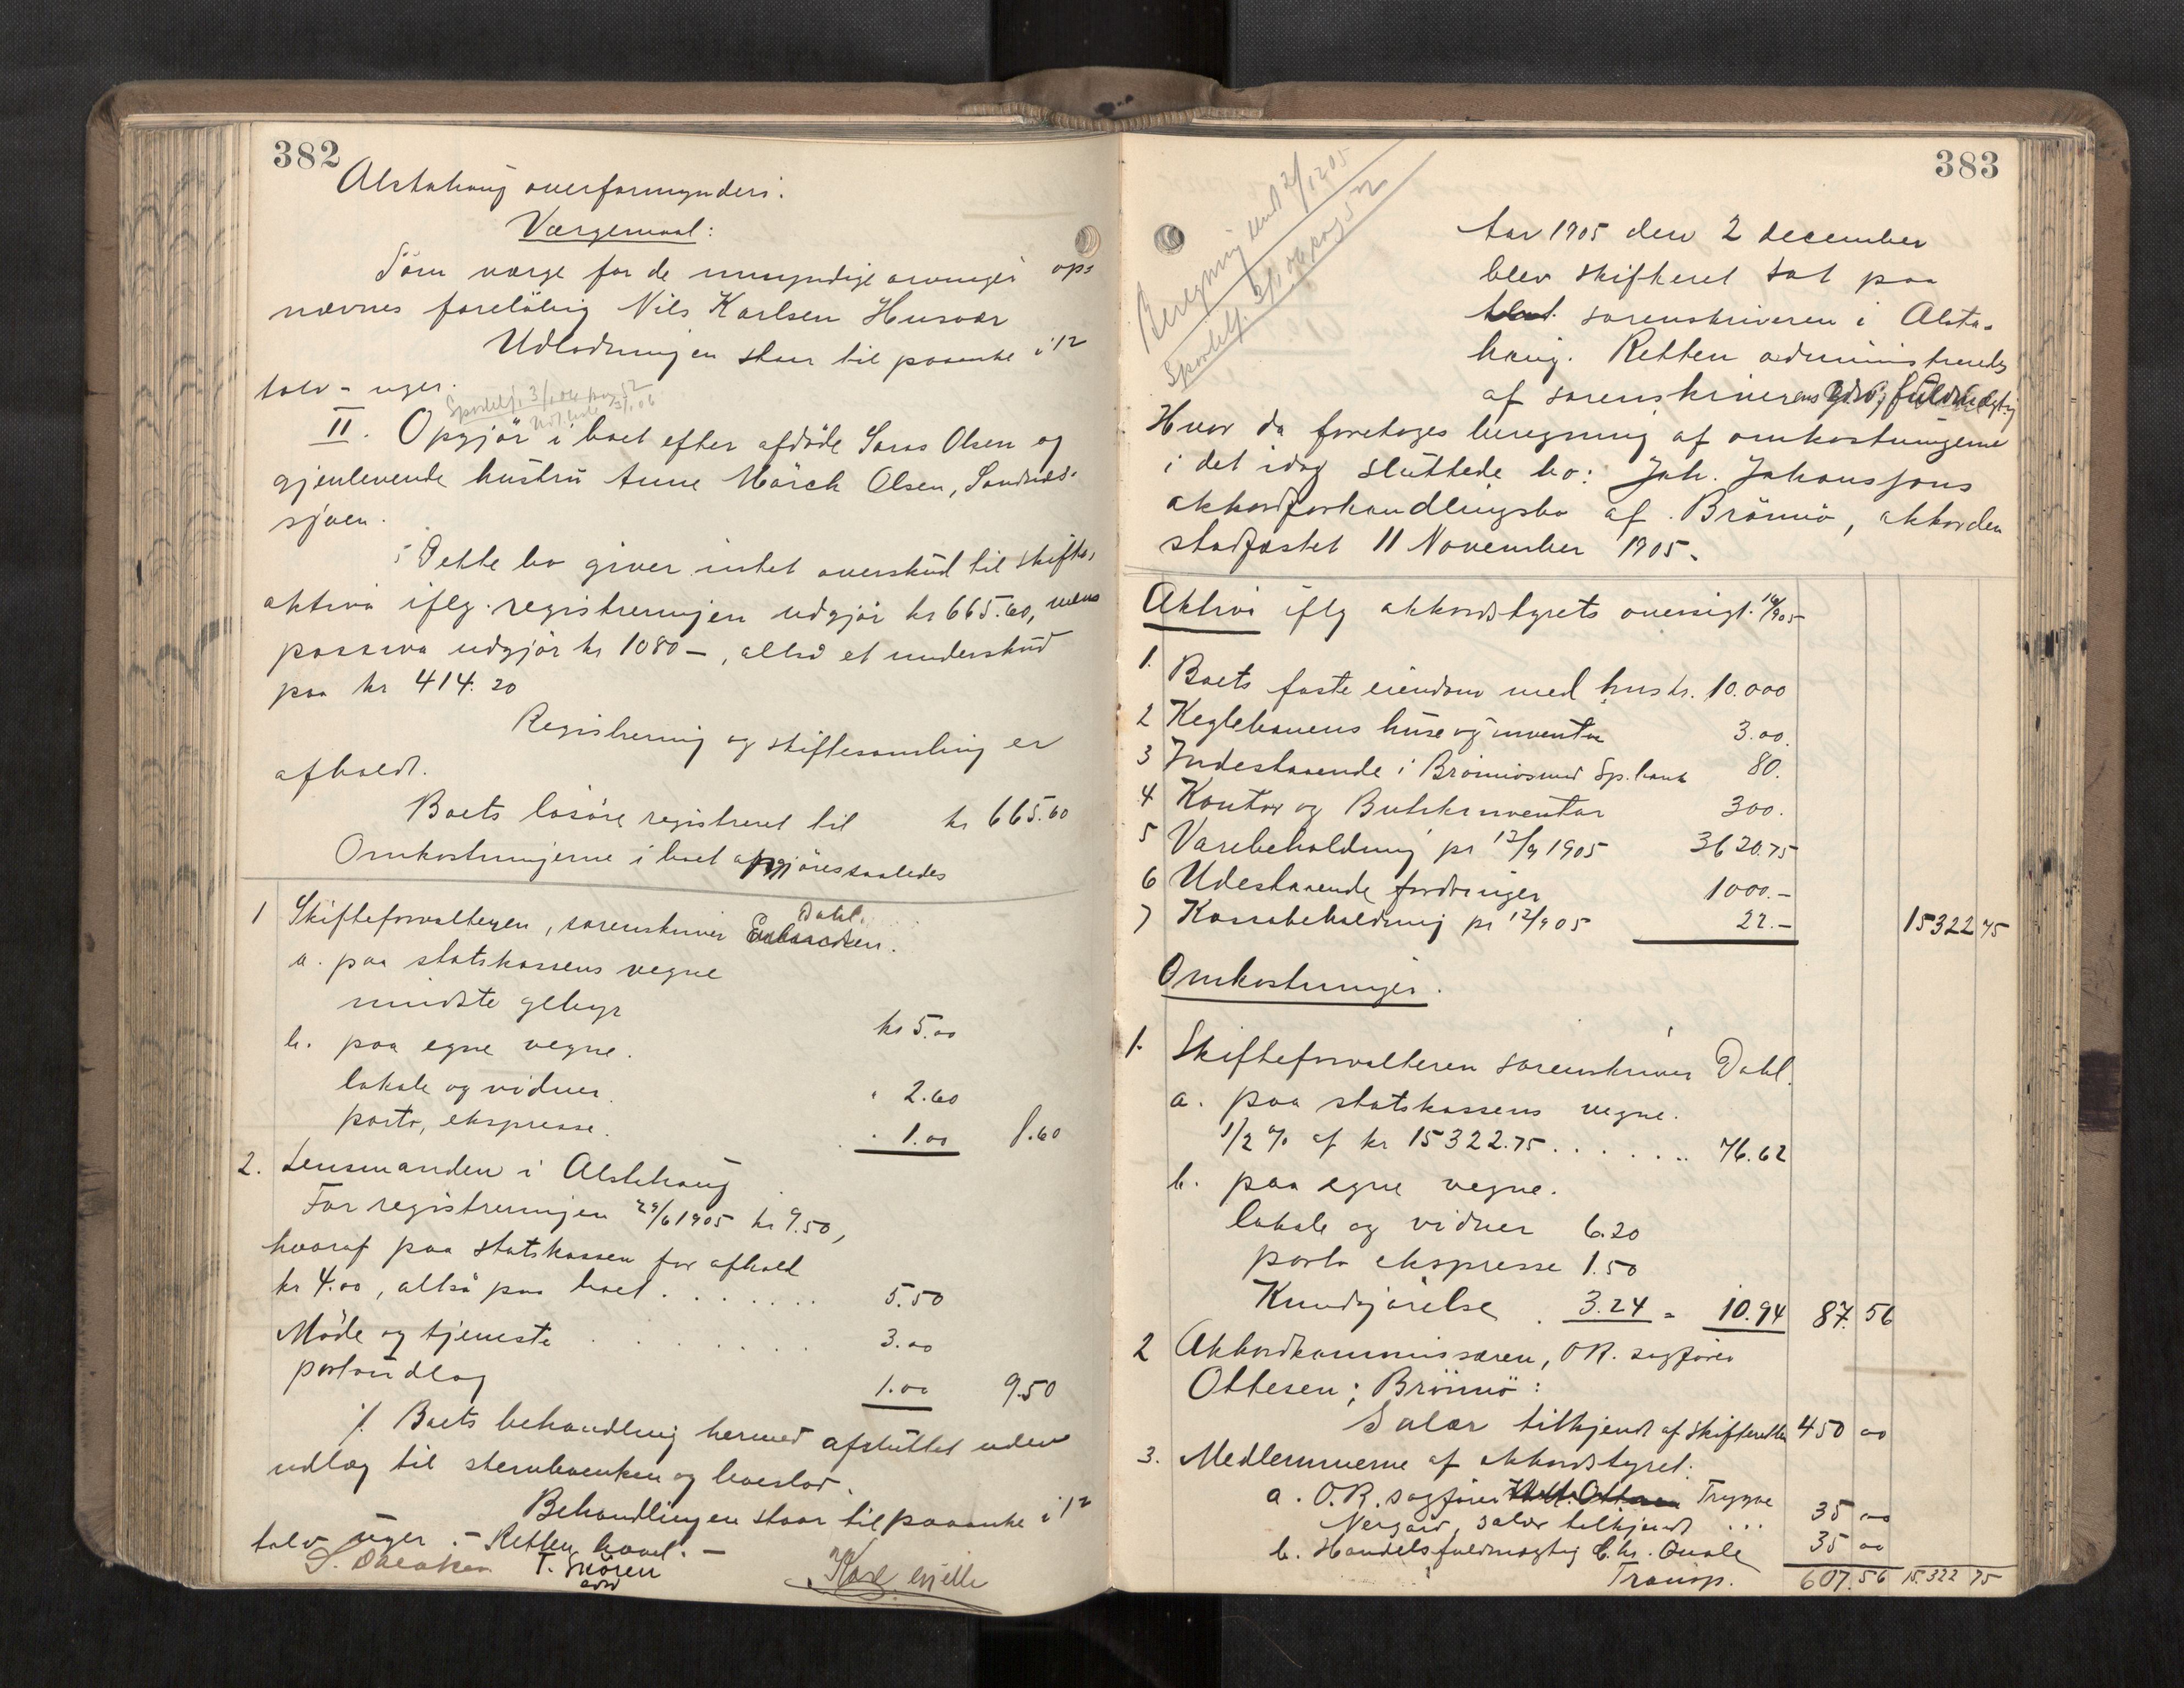 382
Alstahaug overformynderi.
Værgemaal:
Som værge for de umyndige arvinger op-
nævnes foreløbig Nils Karlsen Husvær
Udlodningen staar til paaanke i 12
tolv - uger.
Sportelj. 3/1 06 pag 52
II. Opgjør i boet efter afdøde Saras Olsen og
gjenlevende hustru Anne Mörch Olsen, Sandnes-
sjøen.
Dette bo giver intet overskud til skifte,
aktiva iflg. registreringen udgjør kr 665.60, mens
passiva udgjør kr 1080 –, altså et underskud
paa kr 414.20
Registrering og skiftesamling er
afholdt.
Boets løsøre registreret til kr 665.60
Omkostningerne i boet opgjøres saaledes
1 Skifteforvalteren, sorenskriver Dahl.
a. paa statskassens vegne
mindste gebyr kr 5.00
b. paa egne vegne.
lokale og vidner. " 2.60
porto, ekspresse. " 1.00 8.60
2. Lensmanden i Alstahaug
For registreringen 29/6 1905 kr 9.50,
hvoraf paa statskassen for afhold
kr 4.00, altså paa boet . . . . . . . 5.50
Møde og tjeneste . . . . . . . 3.00
portoudlæg 1.00 9.50
./. Boets behandling hermed afsluttet uden
udlæg til stervboenken og boeslod.
Behandlingen staar til paaanke i 12
tolv uger. – Retten hævet. –
T. Skören
383
Beregning 2/12 05
Sportelj. 3/1 06 pag 52
Aar 1905 den 2 december
blev skifteret sat paa
sorenskriveren i Alsta-
haug. Retten administreredes
af sorenskriverens edsv. fuldmægtig
Hvor da foretoges beregning af omkostningerne
i det idag sluttede bo: Joh. Johanssons
akkordforhandlingsbo af Brönnö, akkorden
stadfæstet 11 November 1905.
Aktiva iflg akkordstyrets oversigt 16/9 05
1. Boets faste eiendom med hus kr. 10.000
2 Keglebanens huse og inventar 3.00.
3 Indestaaende i Brönnösund Sp.bank 80.
4 Kontor og Butikinventar 300.
5 Varebeholdning pr 12/9 1905 3620.75
6 Udestaaende fordringer 1000.-
7 Kassabeholdning pr 12/9 05 22.- 15322 75
Omkostninger.
1. Skifteforvalteren sorenskriver Dahl.
a. paa statskassens vegne.
1/2 % af kr 15322.75 . . . . . . . 76.62
b. paa egne vegne.
lokale og vidner 6.20
porto ekspresse 1.50
Kundgjørelse . 3.24 = 10.94 87. 56
2 Akkordkommissæren, O.R. sagfører
Ottesen; Brönnö:
Salær tilkjendt af skifteretten 450 00
3. Medlemmerne af akkordstyret:
a. O.R. sagfører Trygve
Nergård, salær tilkjendt ... 35 00
b. Handelsfuldmægtig C. Chr. Quale 35 00
Transp. 607.56 15.322 75